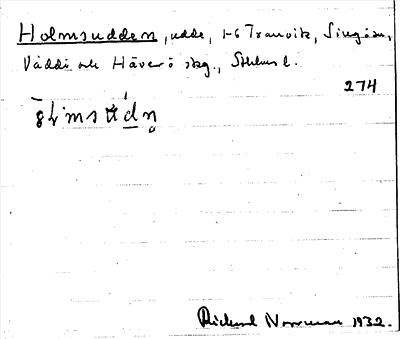 Holmsudden, udde, 1-6 Tranvik, Singö sn,
Väddö och Häverö skg., Sthlms l.
274
Richard Norrman 1932.